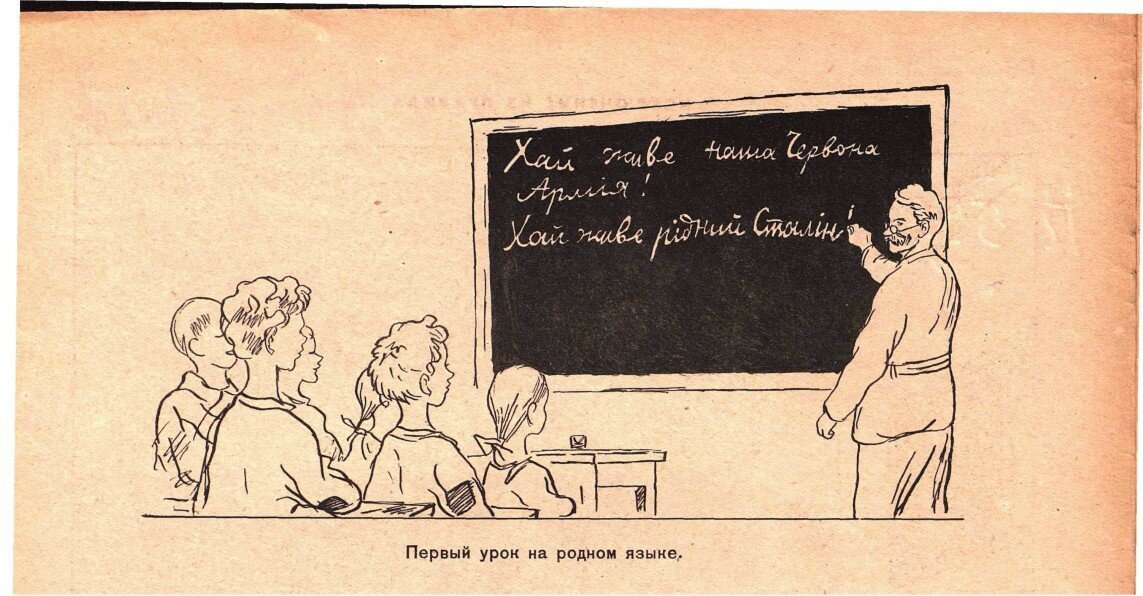 Хай живе наша Червона
Армія!
Хай живе рідний Сталін!
Первый урок на родном языке.